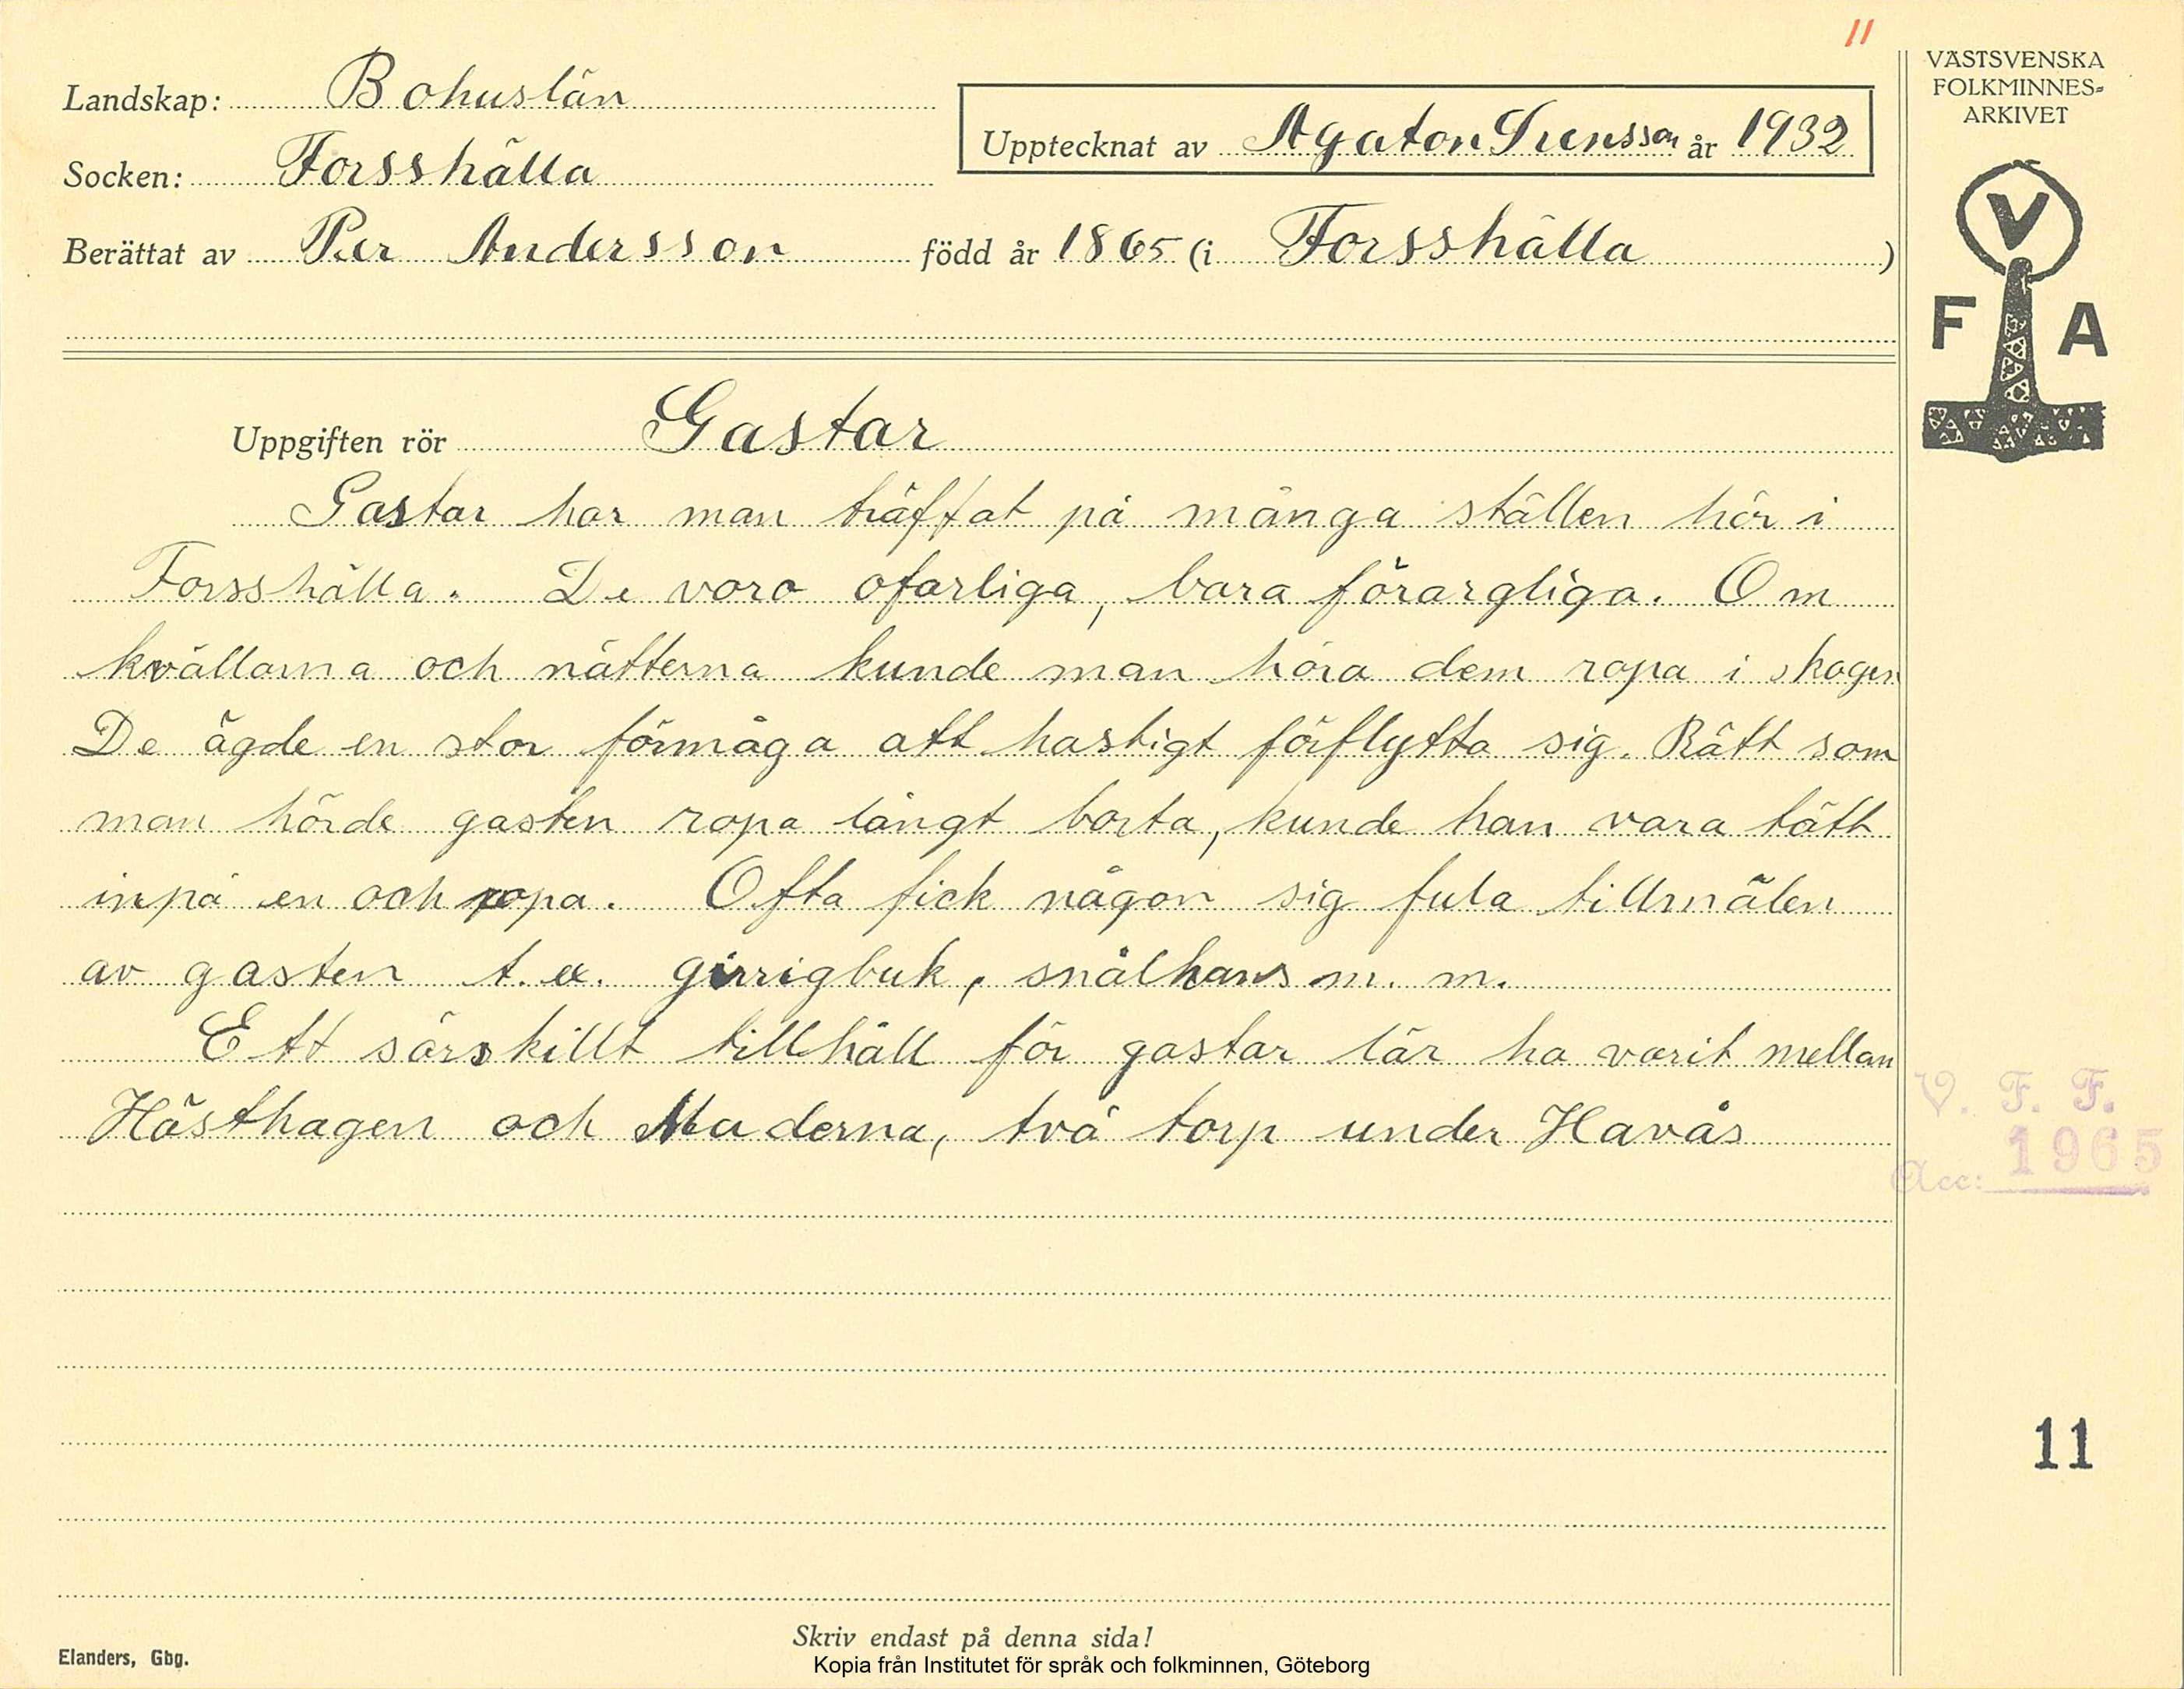 11
VÄSTSVENSKA
FOLKMINNES-
ARKIVET
Landskap: Bohuslän
Upptecknat av Agaton Sunsson år 1932
Socken: Forsshälla
Berättat av Per Andersson född år 1865 (i Forsshälla)
V
F A
Uppgiften rör Gastar
Gastar har man träffat på många ställen här i
Forsshälla. De voro ofarliga, bara förargliga. Om
kvällarna och nätterna kunde man höra dem ropa i skogen
De ägde en stor förmåga att hastigt förflytta sig. Rätt som
man hörde gasten ropa långt borta, kunde han vara tätt
inpå en och ropa. Ofta fick någon sig fula tillmälen
av gasten t. ex. girrigbuk, snålhans m. m.
Ett särskillt tillhåll för gastar lär ha varit mellan
Hästhagen och Maderna, två torp under Havås
V. F. F.
Acc: 1965
11
Skriv endast på denna sida!
Elanders, Gbg.
Kopia från Institutet för språk och folkminnen, Göteborg